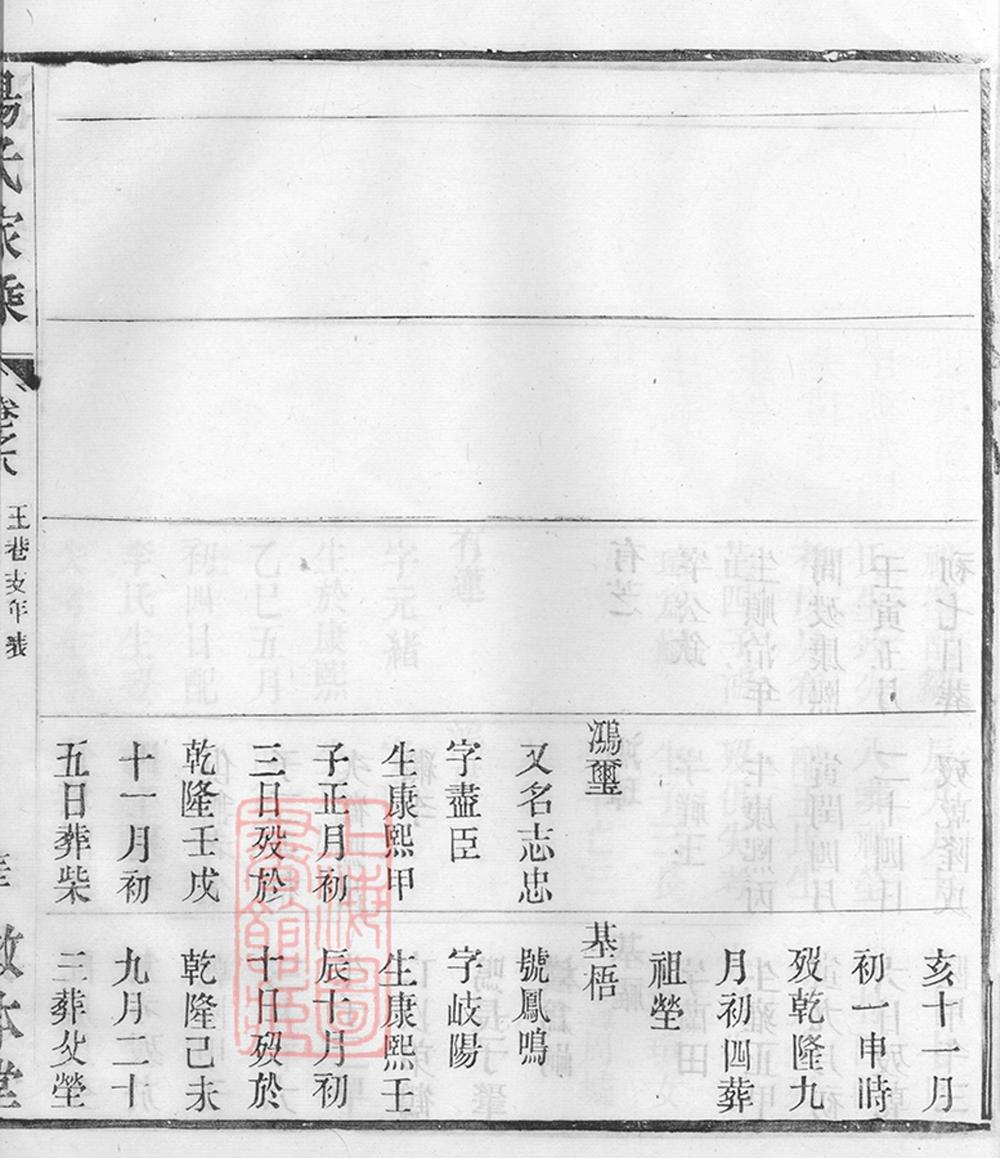 亥十一月
初一申時
歿乾隆九
月初四葬
祖塋
鴻璽
又名志忠
字藎臣
生康熙甲
子正月初
三日歿於
乾隆壬戌
十一月初
五日葬柴
基梧
號鳳鳴
字岐陽
生康熙壬
辰十月初
十日歿於
乾隆己未
九月二十
三葬父塋
氏家乘
卷之六
王巷支年表
敦本堂
上海圖書館藏